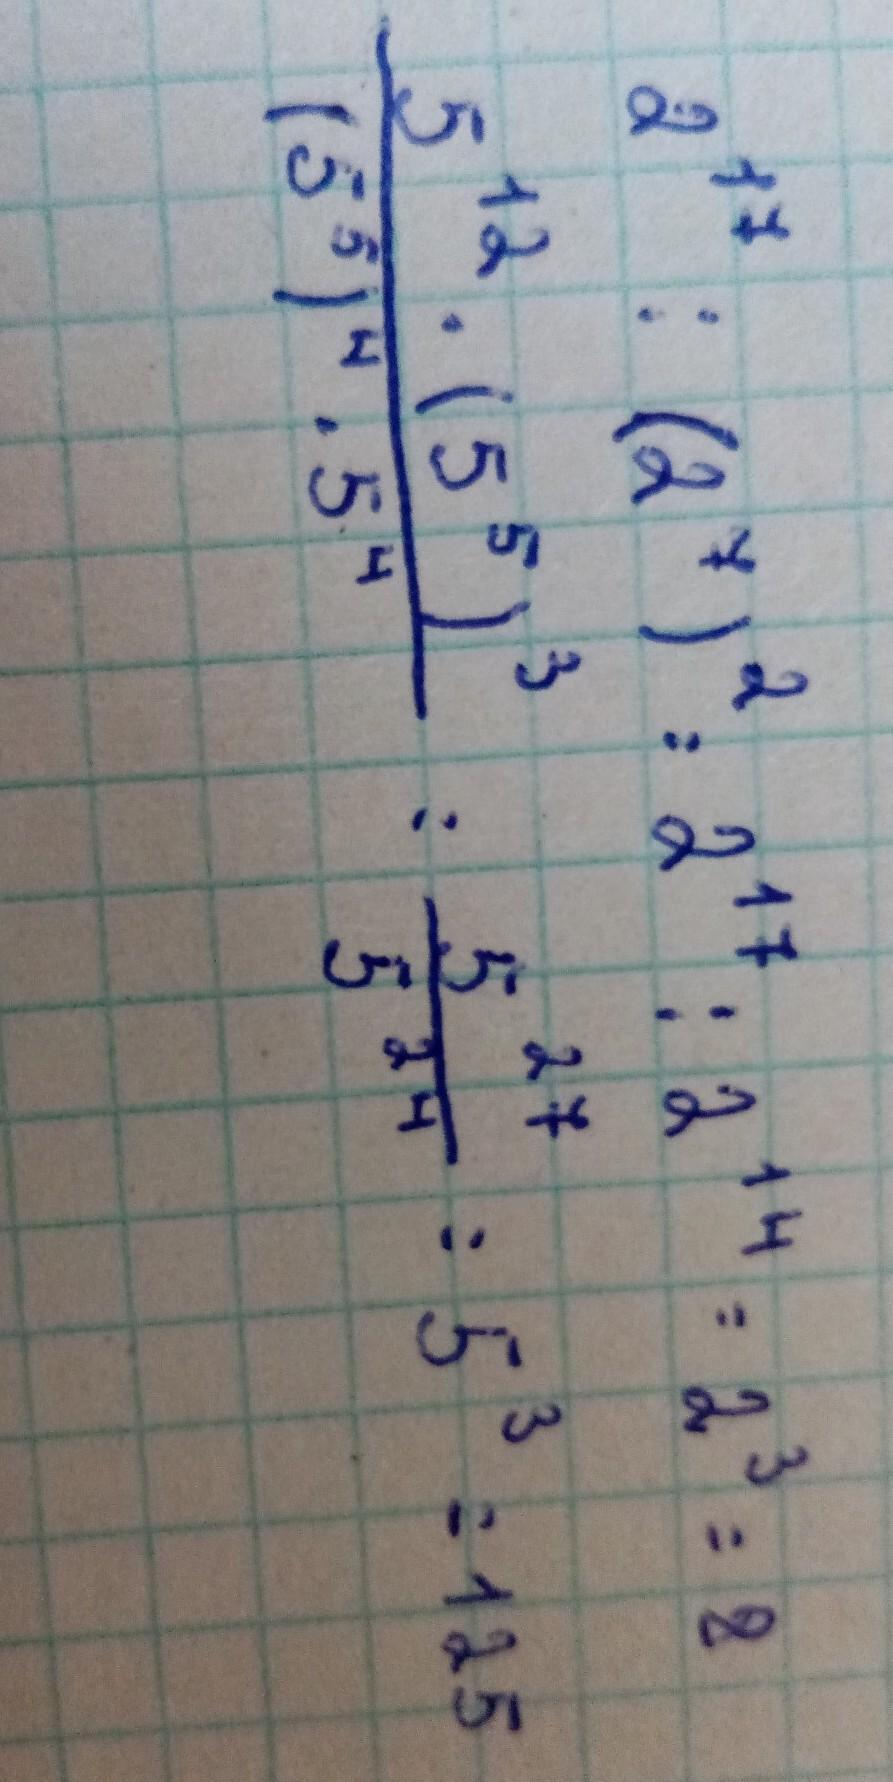 2¹⁷ : (2⁷)² = 2¹⁷ : 2¹⁴ = 2³ = 8
5¹² · (5⁵)³ / (5⁵)⁴ · 5⁴ = 5²⁷ / 5²⁴ = 5³ = 125